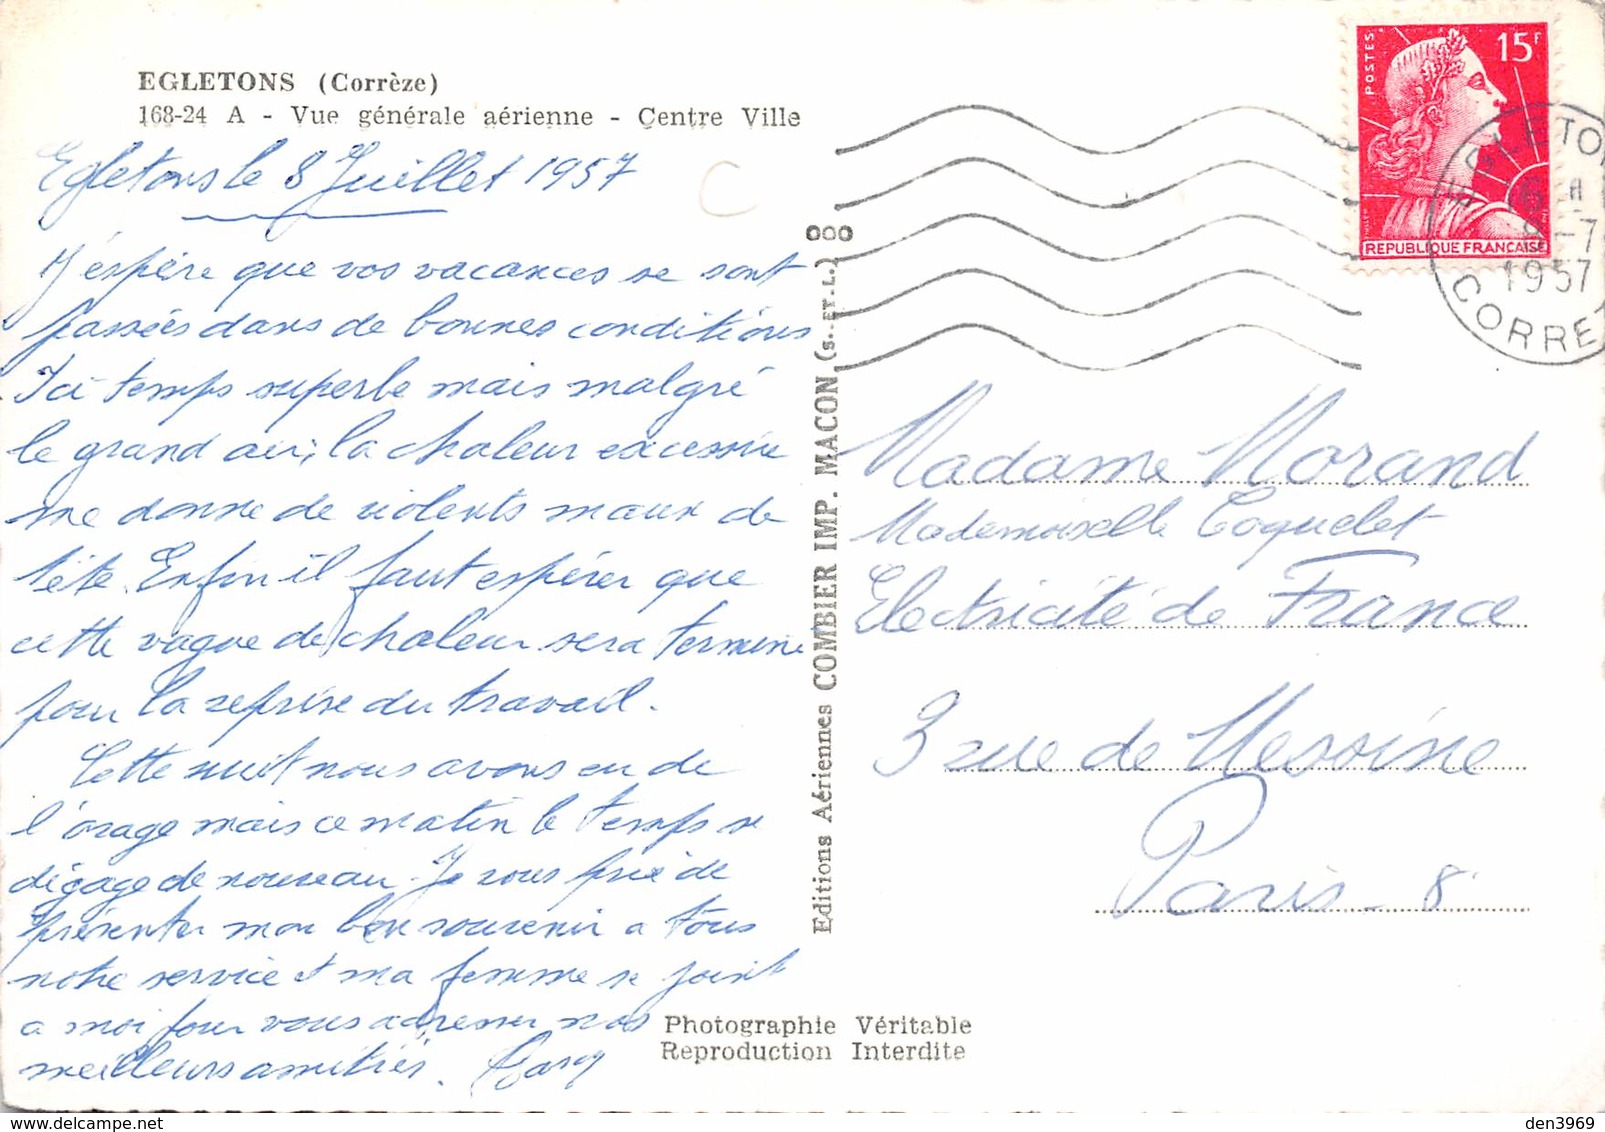 EGLETONS (Corrèze)
168-24 A - Vue générale aérienne - Centre Ville
Egletons le 8 Juillet 1957
J'espère que vos vacances se sont
passées dans de bonnes conditions
Ici temps superbe mais malgré
le grand air, la chaleur excessive
me donne de violents maux de
tête. Enfin il faut espérer que
cette vague de chaleur sera terminé
pour la reprise du travail.
Cette nuit nous avons eu de
l'orage mais ce matin le temps se
dégage de nouveau. Je vous prie de
présenter mon bon souvenir a tous
notre service et ma femme se joint
a moi pour vous adresser nos
meilleurs amitiés.
Editions Aériennes COMBIER IMP. MACON (S.-ET-L.)
Photographie Véritable
Reproduction Interdite
POSTES
15F
REPUBLIQUE FRANCAISE
EGLETON
8 -7
1957
CORREZ
Madame Morand
Mademoiselle Coquelet
Electricité de France
3 rue de Messine
Paris - 8
den3969